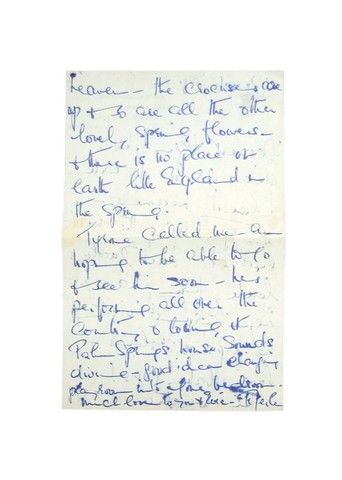 heaven - the crocuses are
up & so are all the other
lovely spring flowers -
& there is no place on
earth like England in
the spring.
Tyrone called me - am
hoping to be able to go
& see him soon - he's
performing all over the
country &
Palm Springs house sounds
divine - good idea changing
playroom into bedroom -
much love to you &